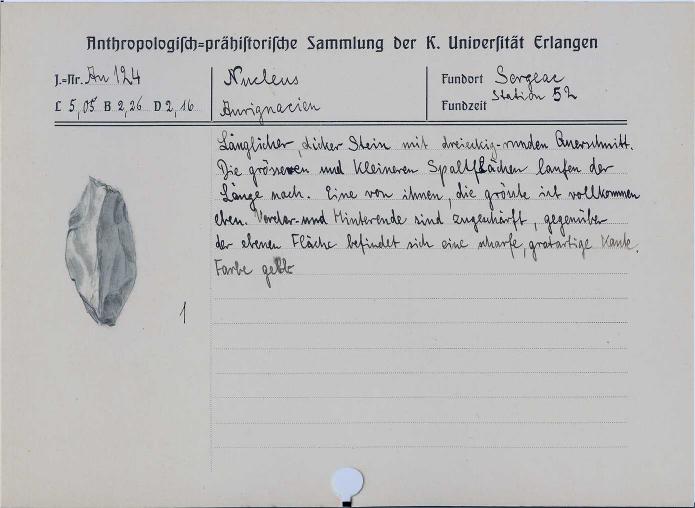 Anthropologisch=prähistorische Sammlung der K. Universität Erlangen
J.=Nr. Au 124
L 5,05 B 2,26 D 2,16
Nucleus
Aurignacien
Fundort Sergeac
Station 52
Fundzeit
Länglicher, dicker Stein mit dreieckig-runden Querschnitt.
Die grösseren und kleineren Spaltflächen laufen der
Länge nach. Eine von ihnen, die grösste ist vollkommen
eben. Vorder- und Hinterende sind zugeschärft, gegenüber
der ebenen Fläche befindet sich eine scharfe, gratartige Kante.
Farbe gelb
1